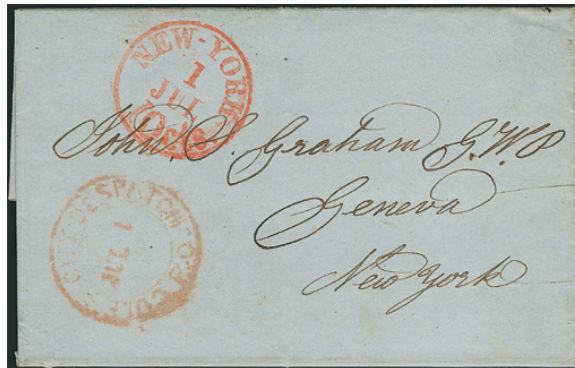 NEW-YORK
1
JUL
10 cts
John. S. Graham G.W.P
Geneva
New York
CITY DESPATCH POST
1
JUL